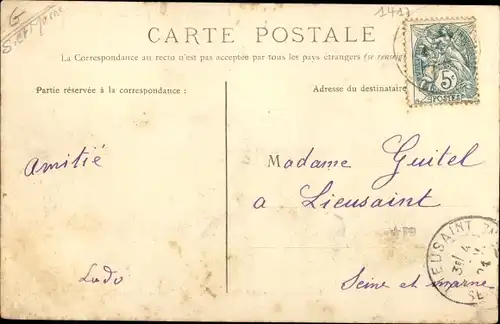 G
S. et Marne
1417
CARTE POSTALE
La Correspondance au recto n'est pas acceptée par tous les pays étrangers (se renseig
Partie réservée à la correspondance :
Adresse du destinataire
5c
POSTES
Amitié
Ludo
Madame Guitel
a Lieusaint
Seine et marne
LIEUSAINT
SE